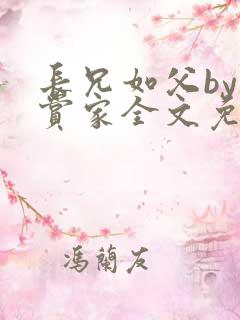 長兄如父by
賣家全文免
馮蘭友